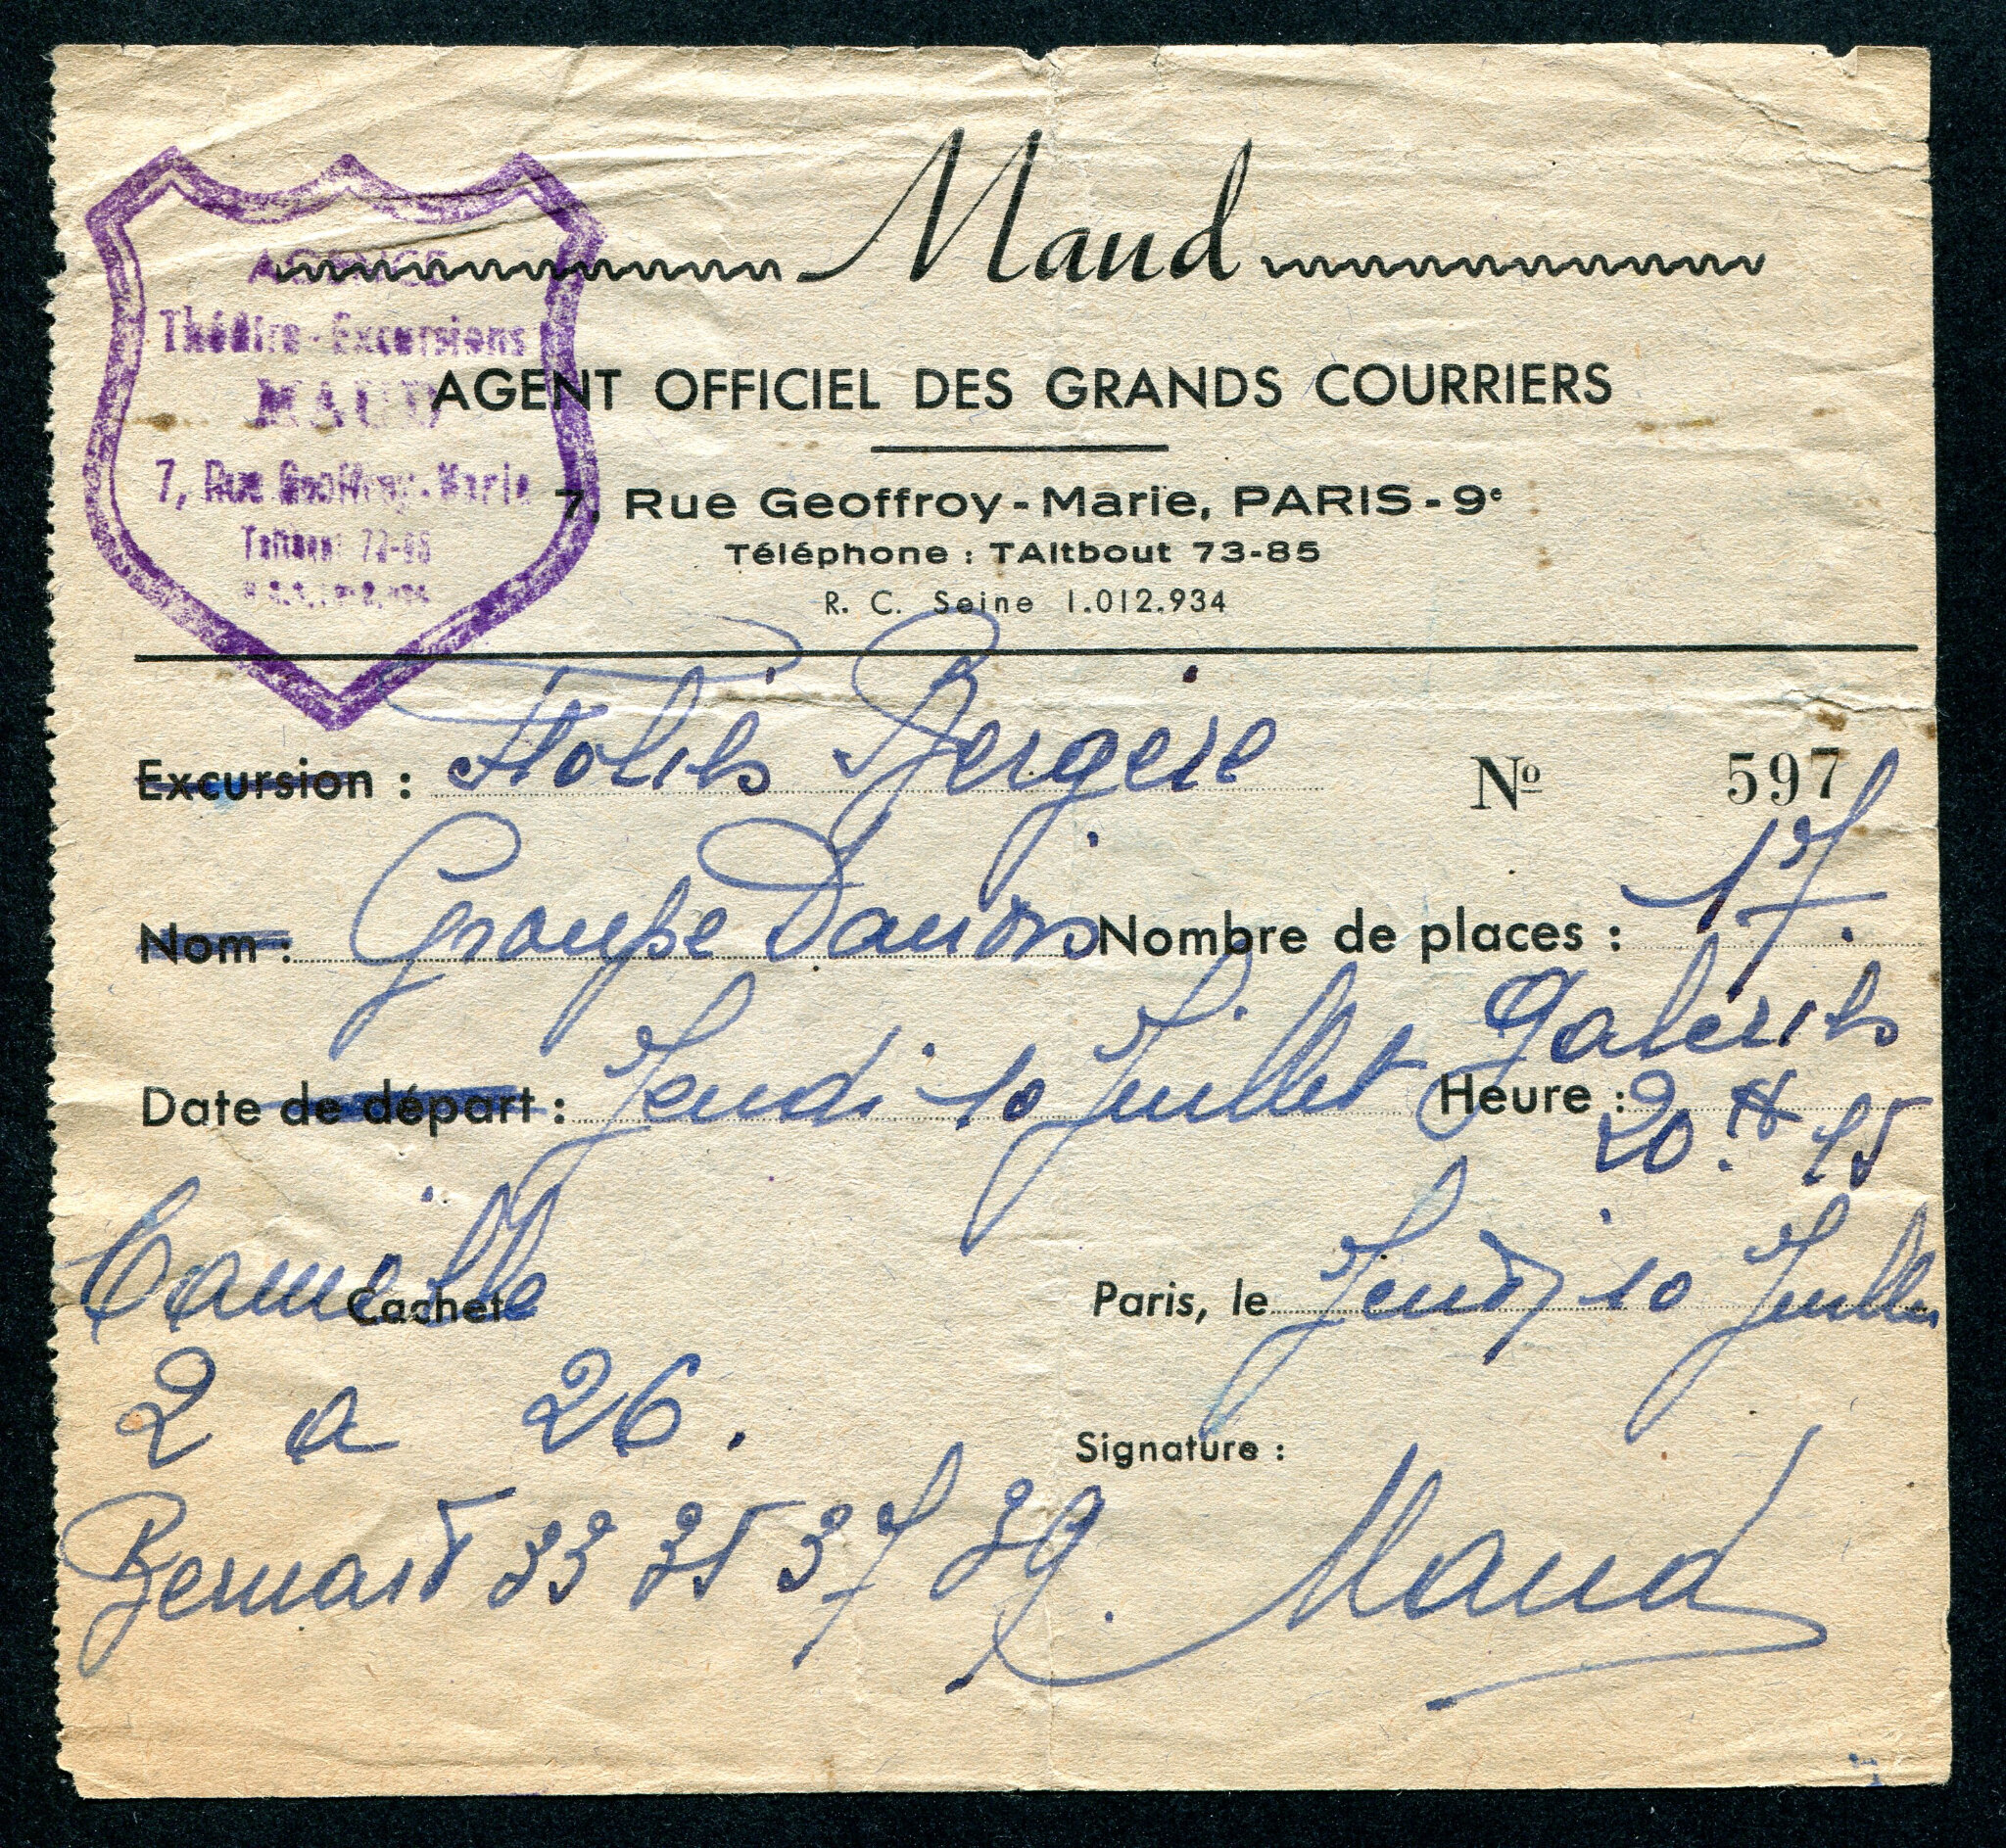 Maud
AGENCE
Théâtre-Excursions
MAUD
7, Rue Geoffroy-Marie
AGENT OFFICIEL DES GRANDS COURRIERS
7, Rue Geoffroy-Marie, PARIS-9e
Téléphone : TAItbout 73-85
R. C. Seine 1.012.934
Excursion : Folies Bergère Nº 597
Nom : Groupe Danois Nombre de places : 17.
Galeries
Date de départ : Jeudi 10 Juillet Heure : 20 H 15
Camille
Cachet Paris, le Jeudi 10 Juillet
2 a 26.
Signature :
Bernard 33 35 37 39. Maud